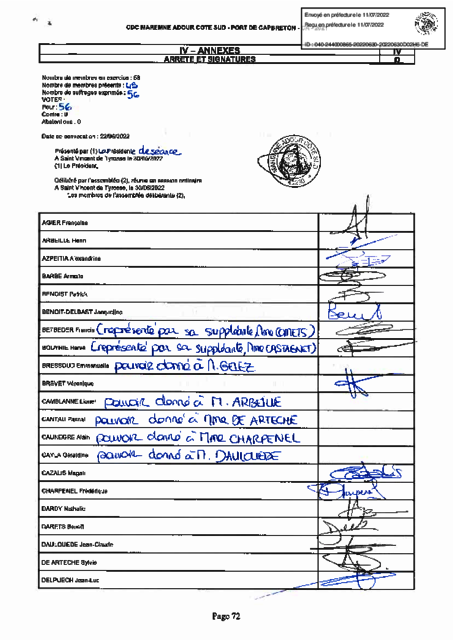 Envoyé en préfecture le 11/07/2022
Reçu en préfecture le 11/07/2022
CDC MAREMNE ADOUR COTE SUD - PORT DE CAPBRETON -
IV – ANNEXES
IV
ARRETE ET SIGNATURES
D
Nombre de membres en exercice : 58
Nombre de membres présents : 48
Nombre de suffrages exprimés : 56
VOTES :
Pour : 56
Contre : 0
Abstentions : 0
Date de convocation : 22/06/2022
Présenté par (1) La Présidente de séance
A Saint Vincent de Tyrosse le 30/06/2022
(1) Le Président,
Délibéré par l'assemblée (2), réunie en session ordinaire
A Saint Vincent de Tyrosse, le 30/06/2022
Les membres de l'assemblée délibérante (2),
AGIER Françoise
ARBEILLE Henri
AZPEITIA Alexandrine
BARBE Armelle
BENOIST Patrick
BENOIT-DELBAST Jacqueline
BETBEDER Francis (représenté par sa suppléante, Mme
BOUYRIE Hervé (représenté par sa suppléante, Mme CASTAGNET)
BRESSOUD Emmanuelle pouvoir donné à M. GELEZ
BREVET Véronique
CAMBLANNE Lionel pouvoir donné à M. ARBEILLE
CANTAU Pascal pouvoir donné à Mme DE ARTECHE
CAUNEGRE Alain pouvoir donné à Mme CHARPENEL
CAYLA Géraldine pouvoir donné à M. DAULOUEDE
CAZALIS Magali
CHARPENEL Frédérique
DARDY Nathalie
DARETS Benoît
DAULOUEDE Jean-Claude
DE ARTECHE Sylvie
DELPUECH Jean-Luc
Page 72